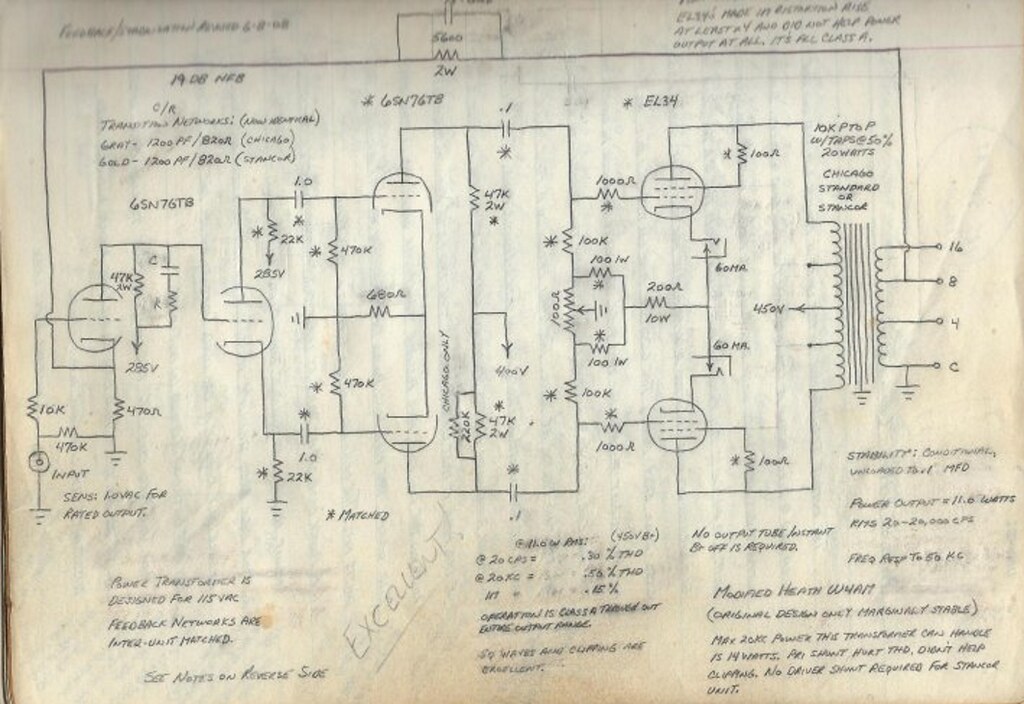 FEEDBACK/STABILIZATION REVISED 6-8-08
EL34'S MADE IM DISTORTION RISE
AT LEAST X4 AND DID NOT HELP POWER
OUTPUT AT ALL. IT'S ALL CLASS A.
560Ω
2W
19 DB NFB
C/R
TRANSITION NETWORKS: (NOW IDENTICAL)
GRAY- 1200 PF/820Ω (CHICAGO)
GOLD- 1200 PF/820Ω (STANCOR)
* 6SN7GTB
.1
*
* EL34
10K P TO P
W/TAPS@50%
20 WATTS
CHICAGO
STANDARD
OR
STANCOR
6SN7GTB
1.0
*
* 22K
285V
* 470K
47K
2W
*
1000Ω
*
* 100Ω
47K
2W
C
R
285V
* 100K
100 1W
*
100Ω
*
100 1W
60MA
200Ω
10W
60MA
450V
16
8
4
C
680Ω
* 470K
CHICAGO ONLY
220K
400V
*
47K
2W
*
100K
*
1000Ω
* 100Ω
10K
470Ω
470K
INPUT
SENS: 1.0VAC FOR
RATED OUTPUT.
*
1.0
* 22K
*
.1
* MATCHED
STABILITY: CONDITIONAL,
UNLOADED TO .1 MFD
POWER OUTPUT = 11.0 WATTS
RMS 20-20,000 CPS
FREQ RESP TO 50 KC
NO OUTPUT TUBE/INSTANT
B+ OFF IS REQUIRED.
@11.0W RMS: (450VB+)
@ 20 CPS = .30 % THD
@ 20KC = .56 % THD
IM = .15%
OPERATION IS CLASS A THROUGH OUT
ENTIRE OUTPUT RANGE.
SQ WAVES AND CLIPPING ARE
EXCELLENT.
EXCELLENT!
POWER TRANSFORMER IS
DESIGNED FOR 115 VAC
FEEDBACK NETWORKS ARE
INTER-UNIT MATCHED.
SEE NOTES ON REVERSE SIDE
MODIFIED HEATH W4AM
(ORIGINAL DESIGN ONLY MARGINALLY STABLE)
MAX 20KC POWER THIS TRANSFORMER CAN HANDLE
IS 14 WATTS. PRI SHUNT HURT THD, DIDN'T HELP
CLIPPING. NO DRIVER SHUNT REQUIRED FOR STANCOR
UNIT.